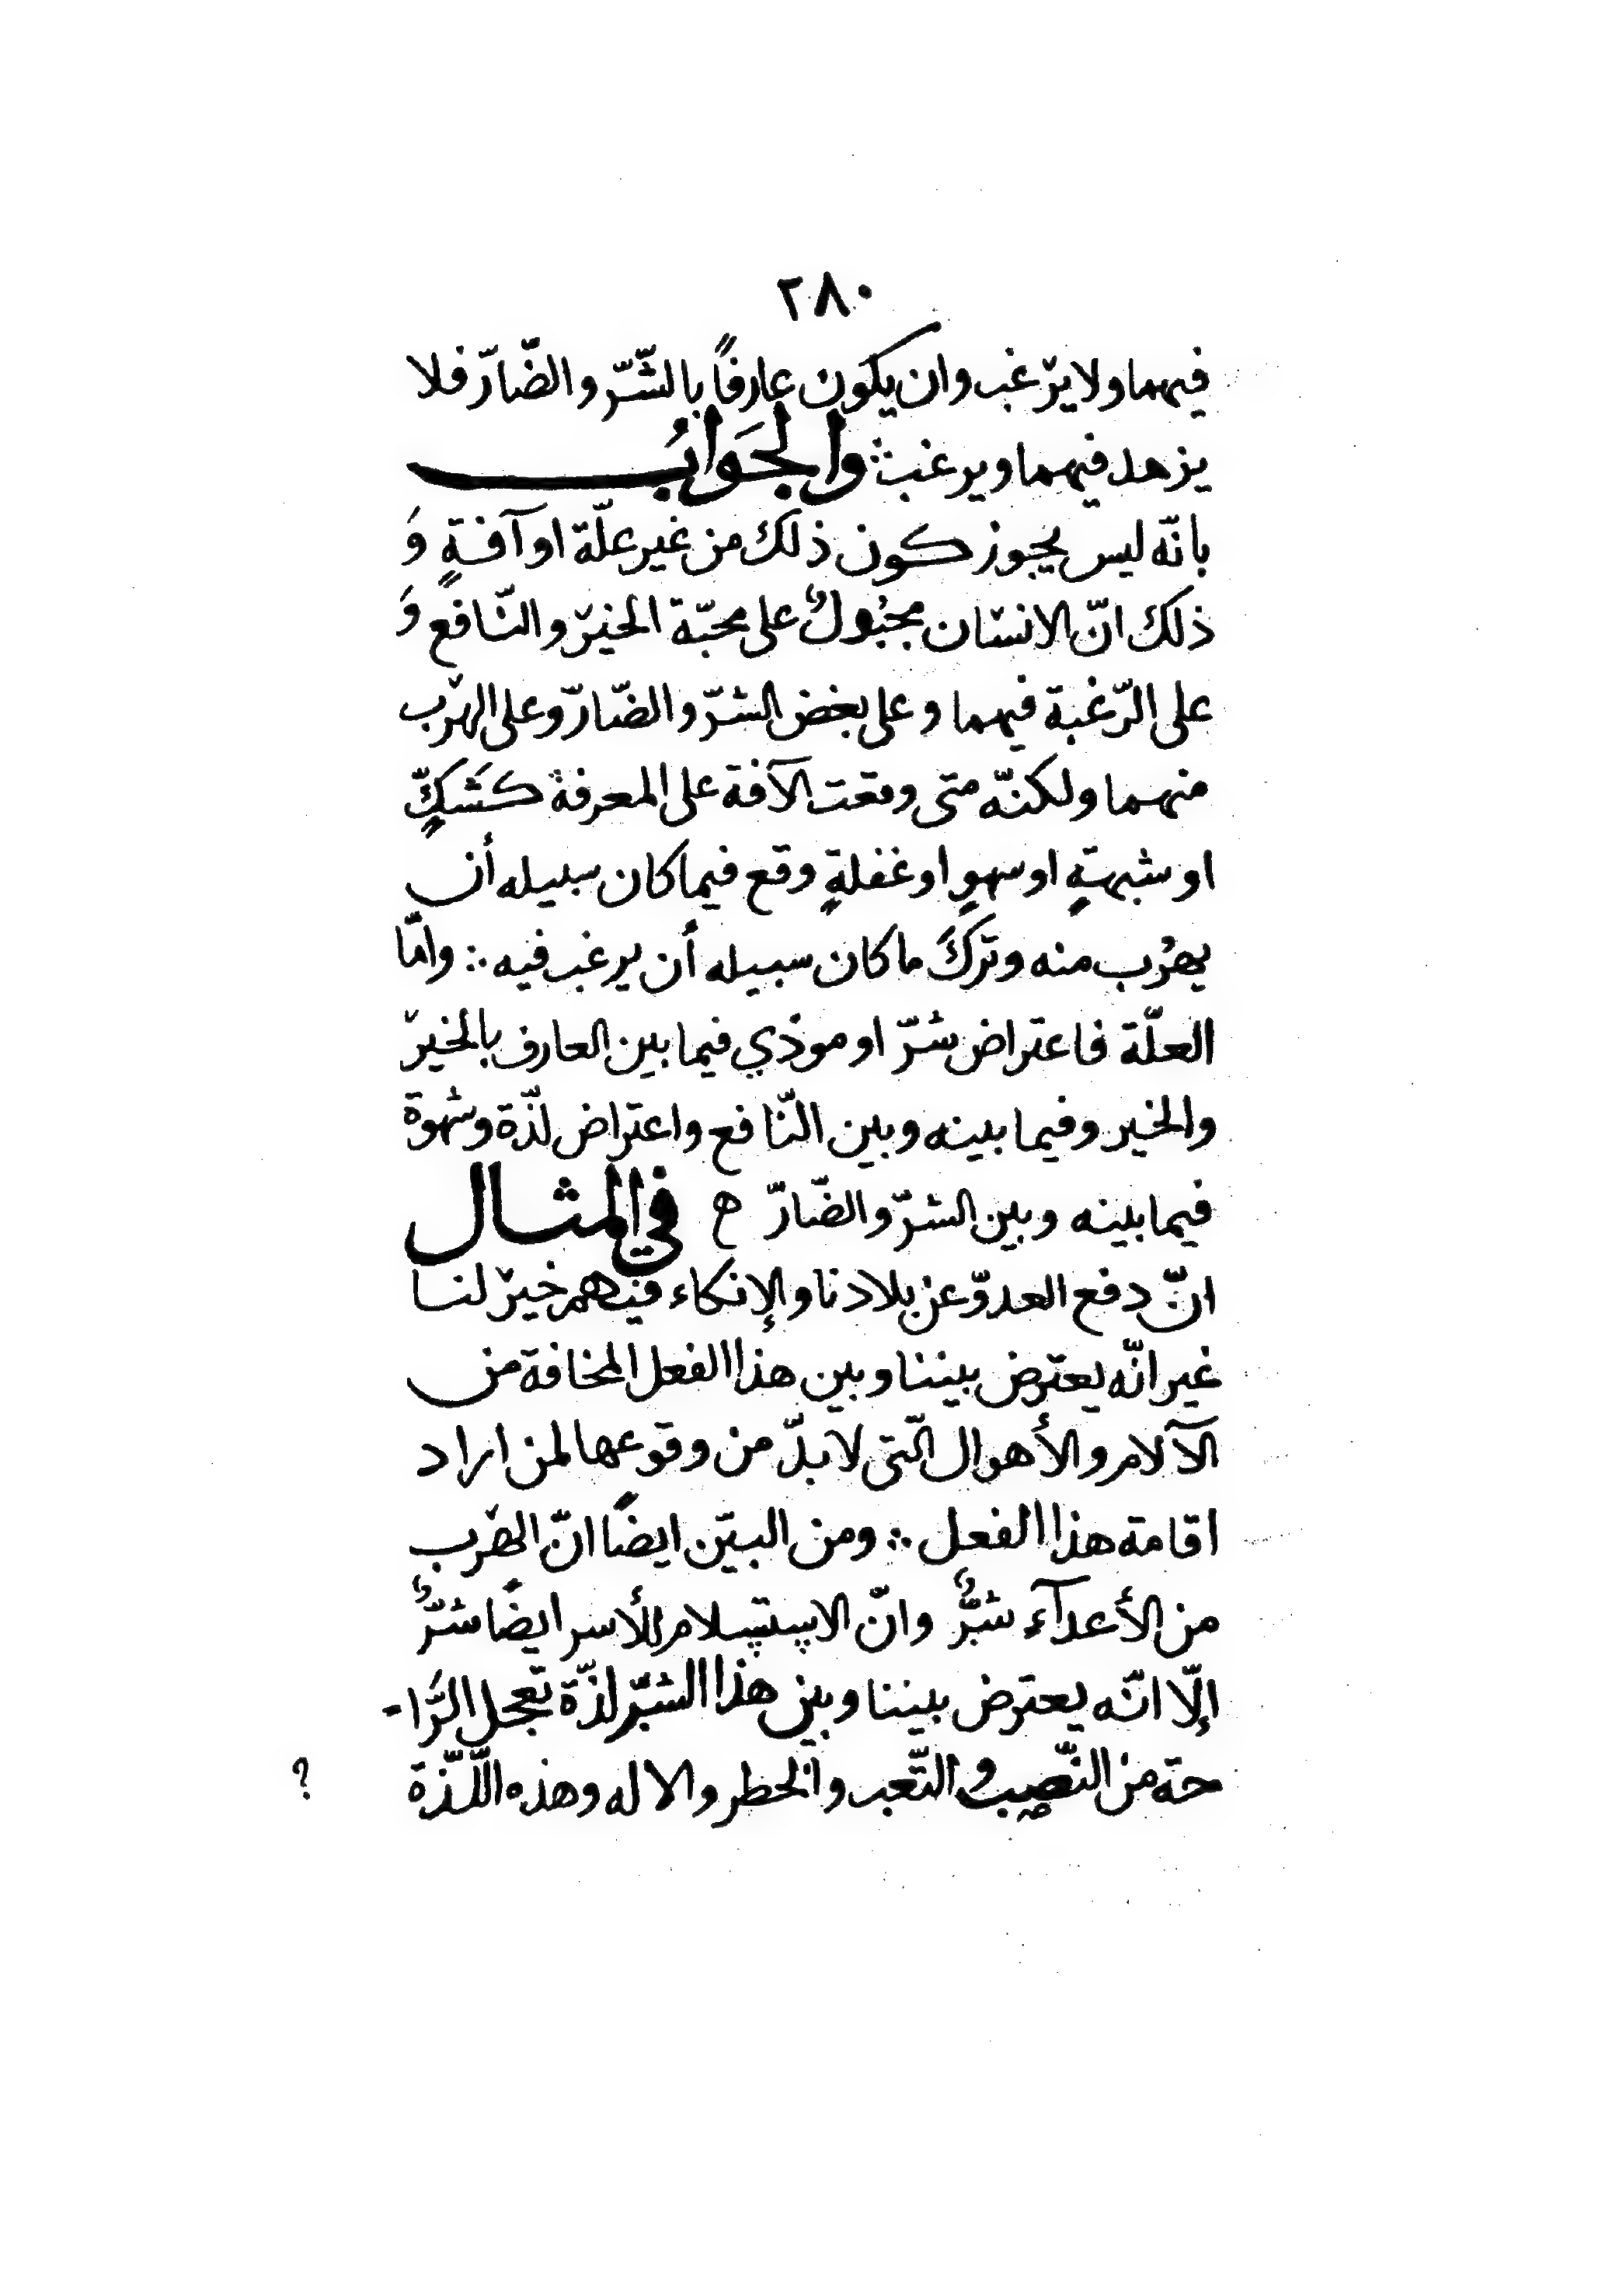 ٢٨٠
فيهما ولا يرغب وان يكون عارفاً بالشّرّ والضّارّ فلا
يزهد فيهما ويرغب ∴ والجَوابُ
بانّه ليس يجوز كون ذلك من غير علّة او آفةٍ وَ
ذلك انّ الانسان مجبُولٌ على محبّة الخير والنّافع وَ
على الرّغبة فيهما وعلى بغض الشرّ والضّارّ وعلى الهرب
منهما ولكنّه متى وقعت الآفة على المعرفة كَشَكٍّ
او شبهةٍ او سهوٍ او غفلةٍ وقع فيما كان سبيله أن
يهرُب منه وتركَ ما كان سبيله أن يرغب فيه ∴ وامّا
العلّة فاعتراض شرّ او موذي فيما بين العارف بالخير
والخير وفيما بينه وبين النّافع واعتراض لذّة وشهوة
فيما بينه وبين الشرّ والضّارّ ه في المثال
انّ دفع العدوّ عن بلادنا والإنكاء فيهم خير لنا
غير انّه يعترض بيننا وبين هذا الفعل المخافة من
الآلام والأهوال الّتى لا بدّ من وقوعها لمن اراد
اقامة هذا الفعل ∴ ومن البيّن ايضًا انّ الهرب
من الأعدآء شرٌّ وانّ الاستسلام للأسر ايضًا شرٌّ
إلّا انّه يعترض بيننا وبين هذا الشرّ لذّة تعجل الرَّا-
حة من النّصب والتّعب والخطر والاله وهذه اللّذّة ؟